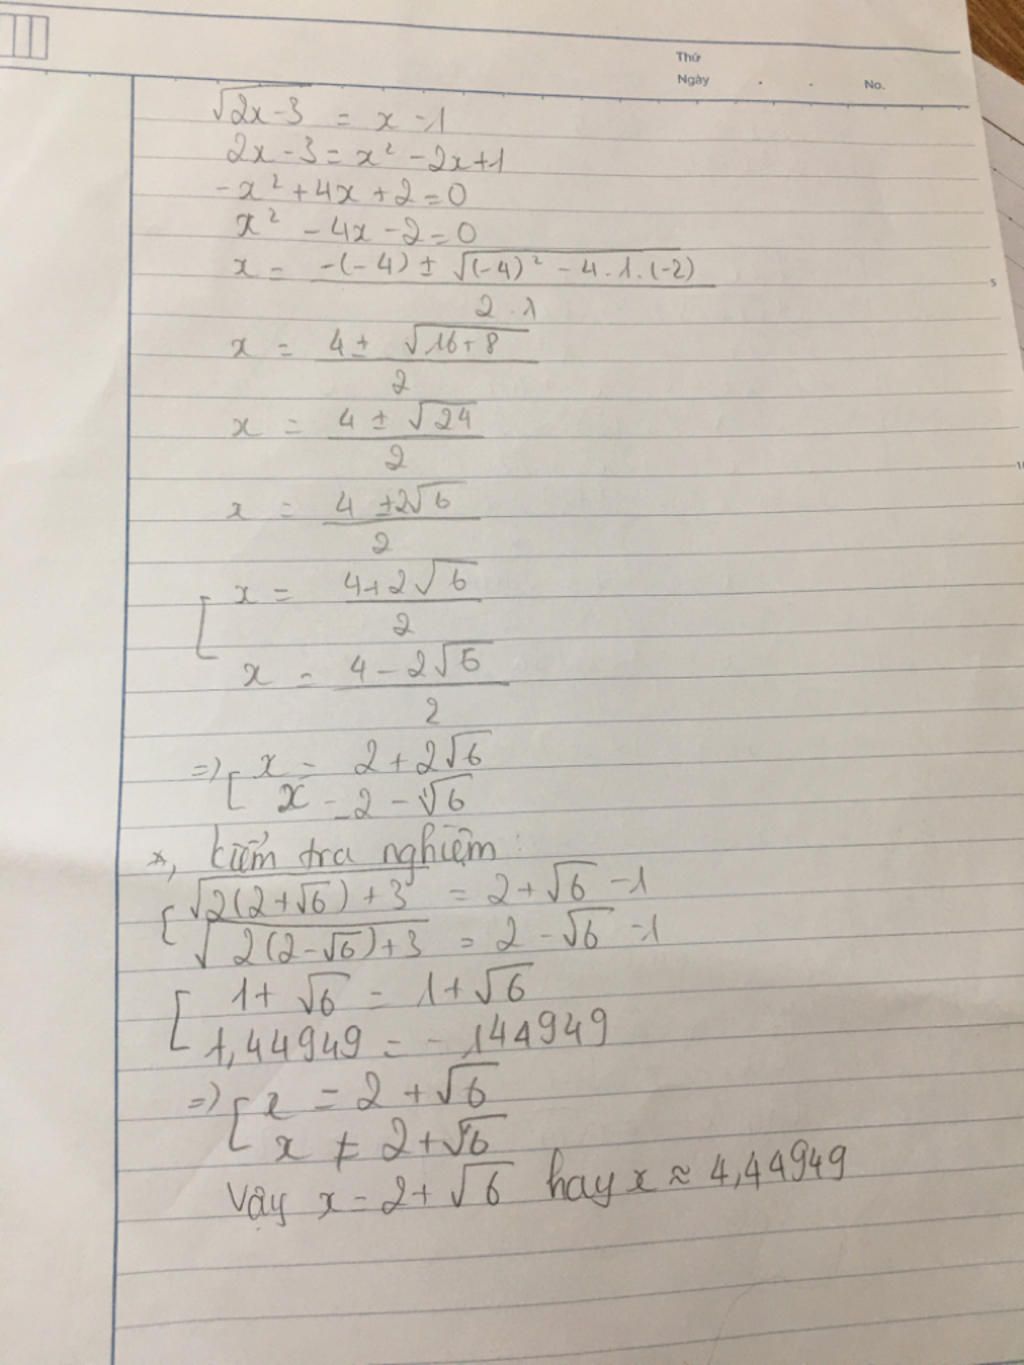 Thứ
Ngày . . No.
√(2x-3) = x-1
2x-3=x² -2x+1
-x²+4x+2=0
x² -4x-2=0
x = (-(-4) ± √((-4)² - 4.1.(-2))) / (2.1)
x = (4± √(16+8)) / 2
x = (4 ± √24) / 2
x = (4 ±2√6) / 2
[ x = (4+2√6) / 2
x = (4-2√6) / 2
=> [ x = 2+2√6
x = 2-√6
*, kiểm tra nghiệm:
[ √(2(2+√6)+3) = 2+√6 -1
√(2(2-√6)+3) = 2-√6 -1
[ 1+√6 = 1+√6
1,44949 = -144949
=> [ x = 2+√6
x ≠ 2+√6
Vậy x = 2+√6 hay x ≈ 4,44949
5
10